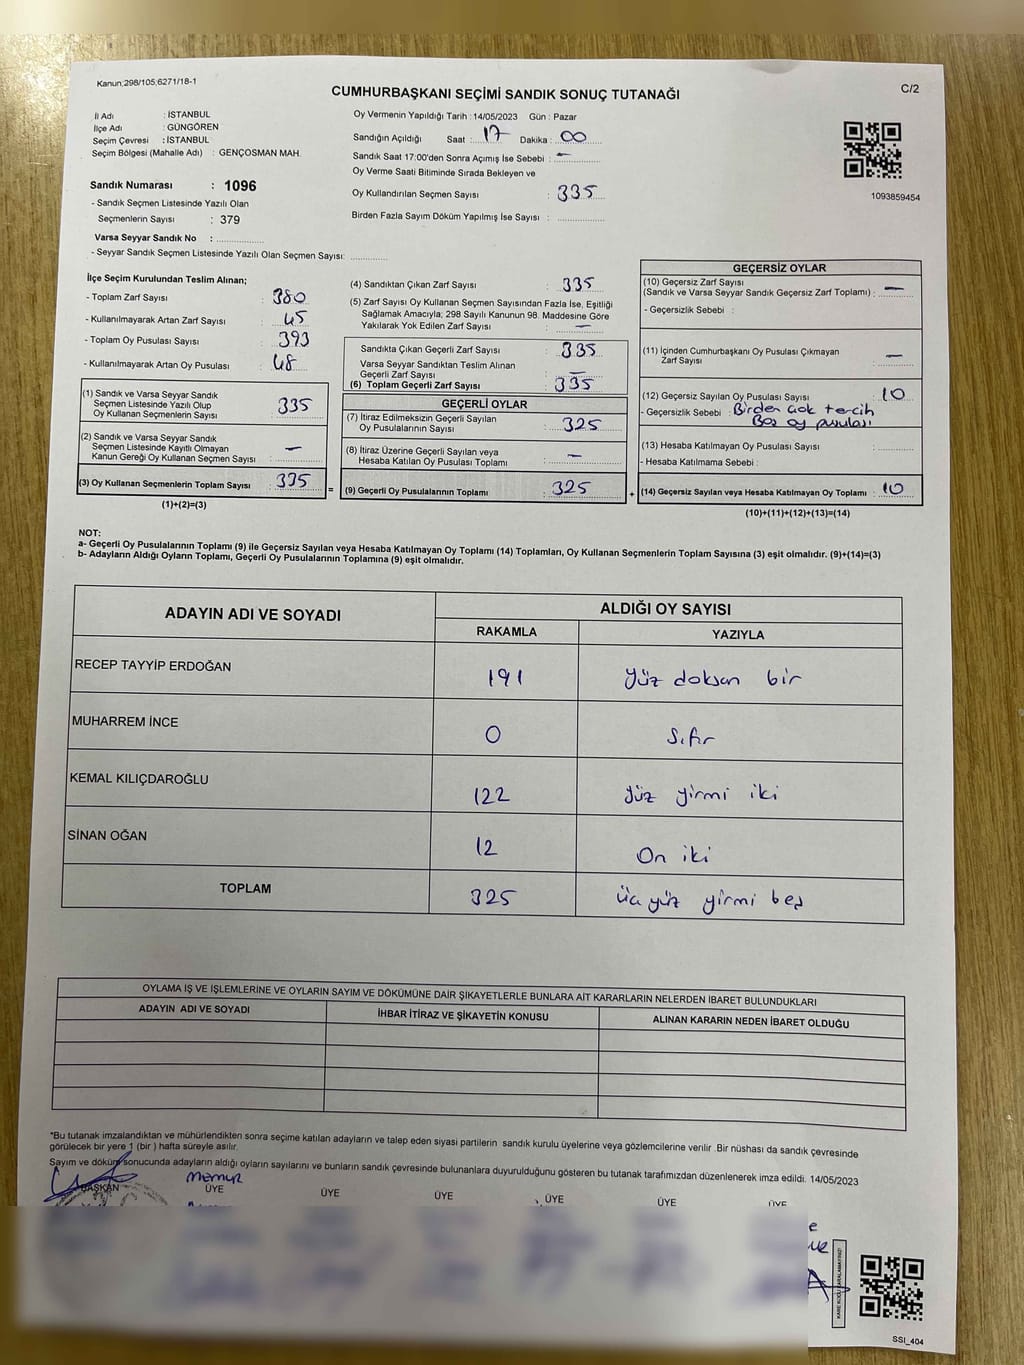 Kanun;298/105;6271/18-1
C/2
CUMHURBAŞKANI SEÇİMİ SANDIK SONUÇ TUTANAĞI
İl Adı : İSTANBUL
İlçe Adı : GÜNGÖREN
Seçim Çevresi : İSTANBUL
Seçim Bölgesi (Mahalle Adı) : GENÇOSMAN MAH.
Sandık Numarası : 1096
- Sandık Seçmen Listesinde Yazılı Olan
Seçmenlerin Sayısı : 379
Varsa Seyyar Sandık No :
- Seyyar Sandık Seçmen Listesinde Yazılı Olan Seçmen Sayısı:
Oy Vermenin Yapıldığı Tarih : 14/05/2023 Gün : Pazar
Sandığın Açıldığı Saat : 17 Dakika : 00
Sandık Saat 17:00'den Sonra Açımış İse Sebebi : -
Oy Verme Saati Bitiminde Sırada Bekleyen ve
Oy Kullandırılan Seçmen Sayısı : 335
Birden Fazla Sayım Döküm Yapılmış İse Sayısı :
1093859454
İlçe Seçim Kurulundan Teslim Alınan;
- Toplam Zarf Sayısı : 380
- Kullanılmayarak Artan Zarf Sayısı : 45
- Toplam Oy Pusulası Sayısı : 393
- Kullanılmayarak Artan Oy Pusulası : 48
(1) Sandık ve Varsa Seyyar Sandık
Seçmen Listesinde Yazılı Olup
Oy Kullanan Seçmenlerin Sayısı : 335
(2) Sandık ve Varsa Seyyar Sandık
Seçmen Listesinde Kayıtlı Olmayan
Kanun Gereği Oy Kullanan Seçmen Sayısı : -
(3) Oy Kullanan Seçmenlerin Toplam Sayısı : 335
(1)+(2)=(3)
=
(4) Sandıktan Çıkan Zarf Sayısı : 335
(5) Zarf Sayısı Oy Kullanan Seçmen Sayısından Fazla İse, Eşitliği
Sağlamak Amacıyla; 298 Sayılı Kanunun 98. Maddesine Göre
Yakılarak Yok Edilen Zarf Sayısı : -
Sandıkta Çıkan Geçerli Zarf Sayısı : 335
Varsa Seyyar Sandıktan Teslim Alınan
Geçerli Zarf Sayısı : -
(6) Toplam Geçerli Zarf Sayısı : 335
GEÇERLİ OYLAR
(7) İtiraz Edilmeksizin Geçerli Sayılan
Oy Pusulalarının Sayısı : 325
(8) İtiraz Üzerine Geçerli Sayılan veya
Hesaba Katılan Oy Pusulası Toplamı : -
(9) Geçerli Oy Pusulalarının Toplamı : 325
+
GEÇERSİZ OYLAR
(10) Geçersiz Zarf Sayısı
(Sandık ve Varsa Seyyar Sandık Geçersiz Zarf Toplamı) : -
- Geçersizlik Sebebi :
(11) İçinden Cumhurbaşkanı Oy Pusulası Çıkmayan
Zarf Sayısı : -
(12) Geçersiz Sayılan Oy Pusulası Sayısı : 10
- Geçersizlik Sebebi : Birden çok tercih
Boş oy pusulası
(13) Hesaba Katılmayan Oy Pusulası Sayısı :
- Hesaba Katılmama Sebebi :
(14) Geçersiz Sayılan veya Hesaba Katılmayan Oy Toplamı : 10
(10)+(11)+(12)+(13)=(14)
NOT:
a- Geçerli Oy Pusulalarının Toplamı (9) ile Geçersiz Sayılan veya Hesaba Katılmayan Oy Toplamı (14) Toplamları, Oy Kullanan Seçmenlerin Toplam Sayısına (3) eşit olmalıdır. (9)+(14)=(3)
b- Adayların Aldığı Oyların Toplamı, Geçerli Oy Pusulalarının Toplamına (9) eşit olmalıdır.
ADAYIN ADI VE SOYADI
ALDIĞI OY SAYISI
RAKAMLA YAZIYLA
RECEP TAYYİP ERDOĞAN 191 yüz doksan bir
MUHARREM İNCE 0 Sıfır
KEMAL KILIÇDAROĞLU 122 yüz yirmi iki
SİNAN OĞAN 12 On iki
TOPLAM 325 üç yüz yirmi beş
OYLAMA İŞ VE İŞLEMLERİNE VE OYLARIN SAYIM VE DÖKÜMÜNE DAİR ŞİKAYETLERLE BUNLARA AİT KARARLARIN NELERDEN İBARET BULUNDUKLARI
ADAYIN ADI VE SOYADI İHBAR İTİRAZ VE ŞİKAYETİN KONUSU ALINAN KARARIN NEDEN İBARET OLDUĞU
*Bu tutanak imzalandıktan ve mühürlendikten sonra seçime katılan adayların ve talep eden siyasi partilerin sandık kurulu üyelerine veya gözlemcilerine verilir. Bir nüshası da sandık çevresinde
görülecek bir yere 1 (bir ) hafta süreyle asılır.
Sayım ve döküm sonucunda adayların aldığı oyların sayılarını ve bunların sandık çevresinde bulunanlara duyurulduğunu gösteren bu tutanak tarafımızdan düzenlenerek imza edildi. 14/05/2023
Memur
BAŞKAN ÜYE ÜYE ÜYE ÜYE ÜYE ÜYE
SSI_404